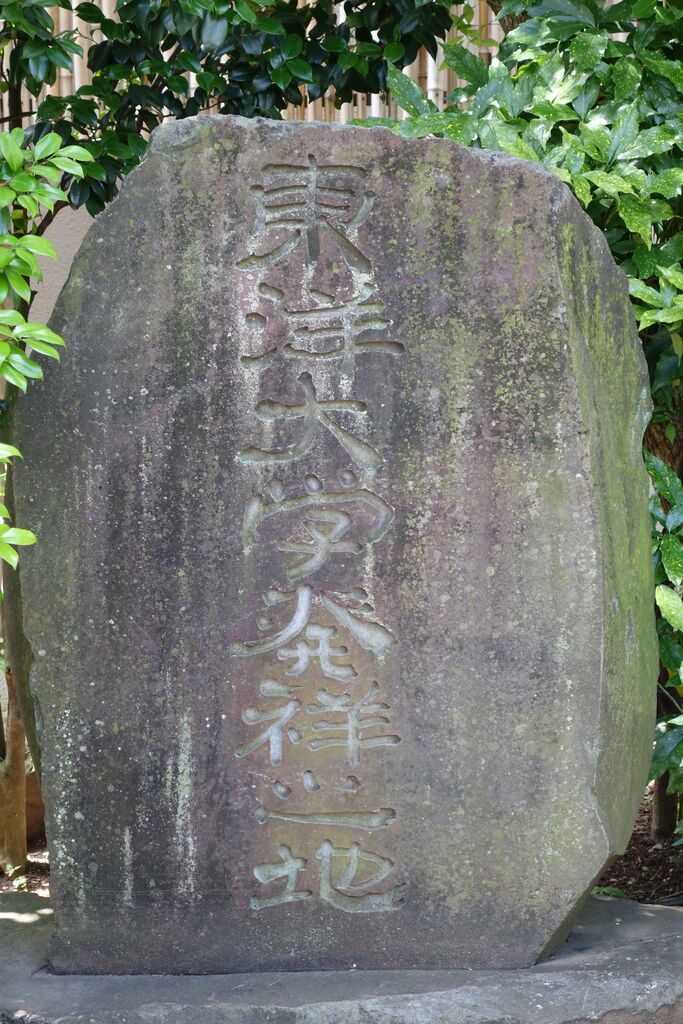 東洋大学発祥之地